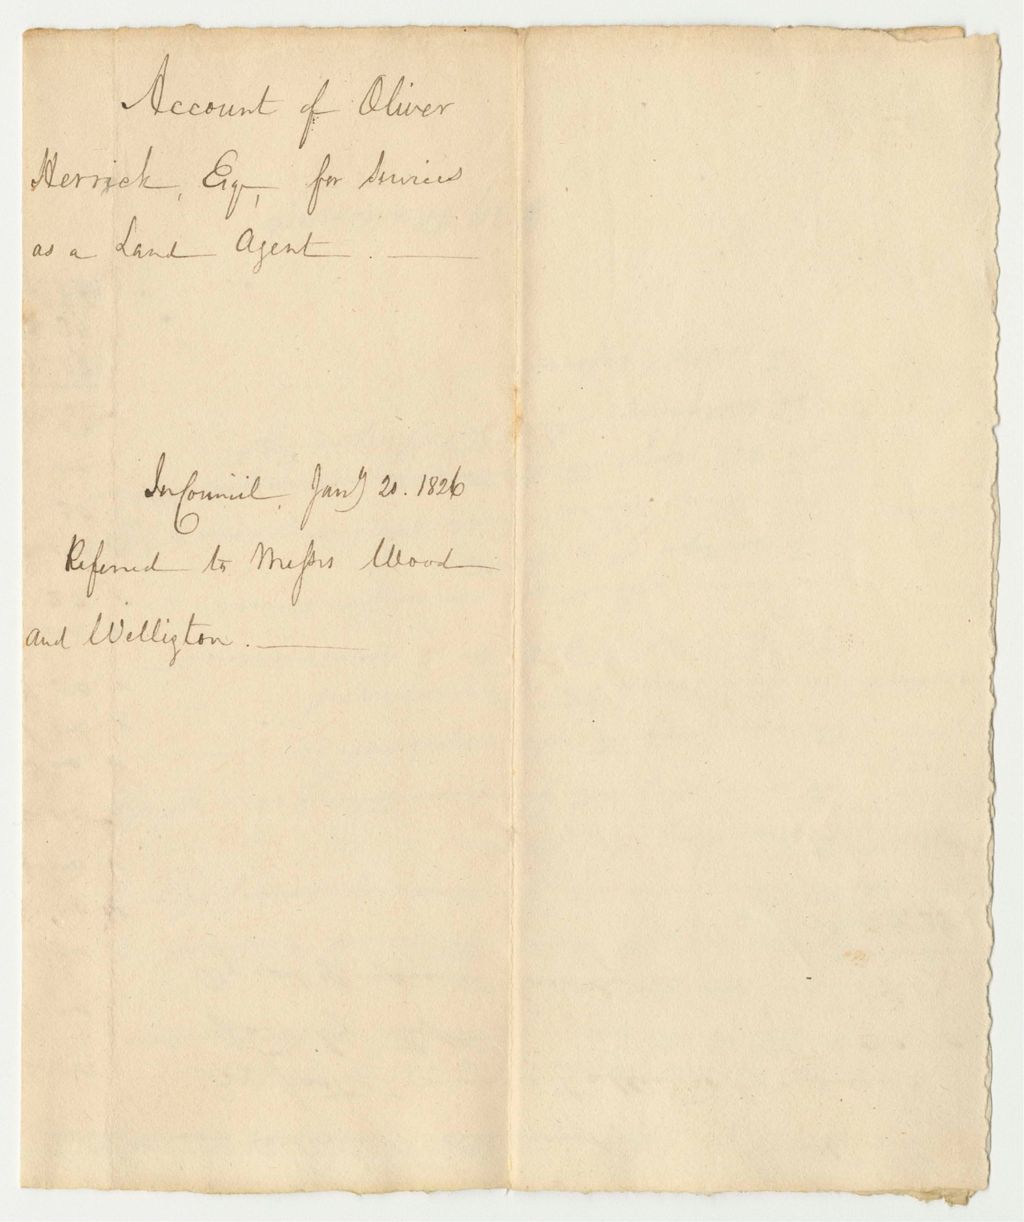 Account of Oliver
Herrick, Esqr, for Services
as a Land Agent.
In Council, Jany 20. 1826
Referred to Messrs Wood
and Welligton.